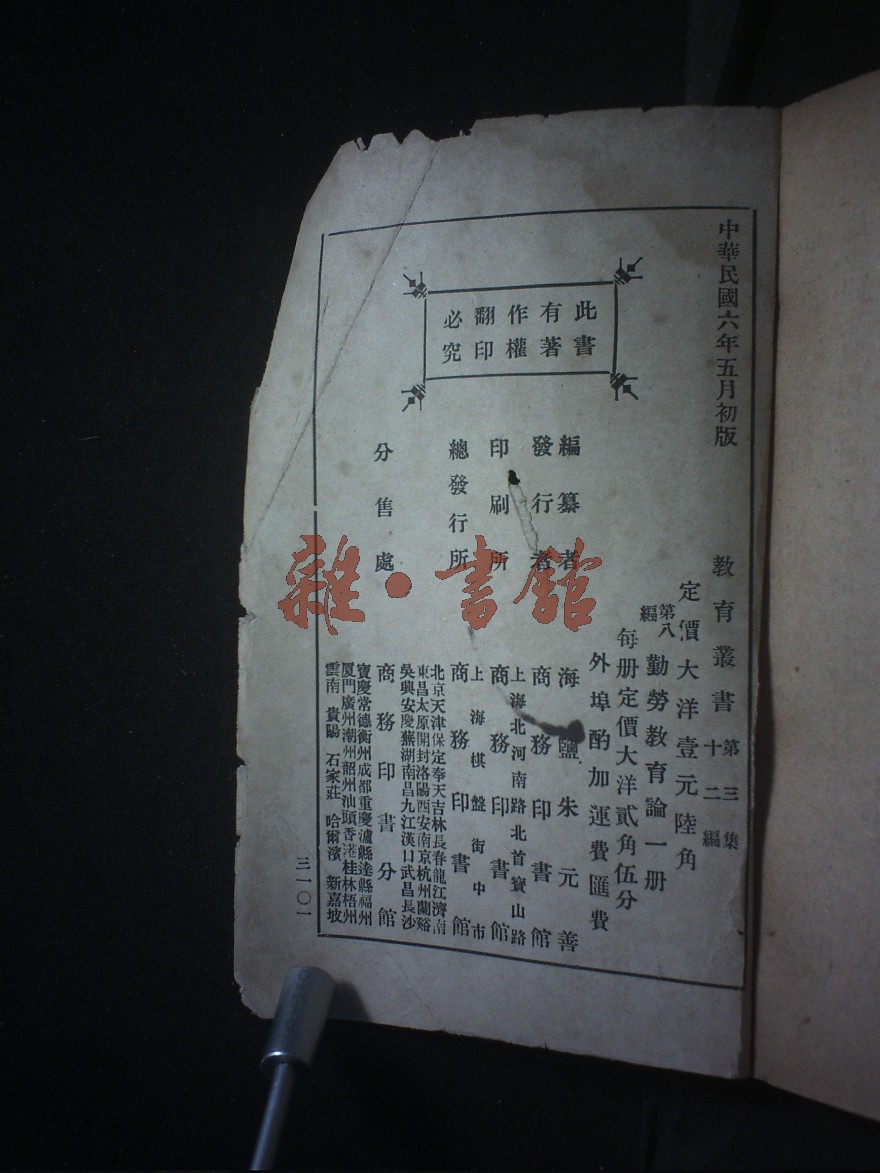 中華民國六年五月初版
教育叢書第三集十二編
定價大洋壹元陸角
第八編勤勞教育論一册
每册定價大洋貳角伍分
外埠酌加運費匯費
此書
有著
作權
翻印
必究
編纂者 海鹽朱元善
發行者 商務印書館
上海北河南路北首寶山路
印刷所 商務印書館
上海棋盤街中市
總發行所 商務印書館
北京天津保定奉天吉林長春龍江濟南
東昌太原開封洛陽西安南京杭州蘭谿
吳興安慶蕪湖南昌九江漢口武昌長沙
分售處 商務印書分館
寶慶常德衡州成都重慶瀘縣達縣福州
厦門廣州潮州韶州汕頭香港桂林梧州
雲南 貴陽 石家莊 哈爾濱 新嘉坡
三一〇一
雜·書館